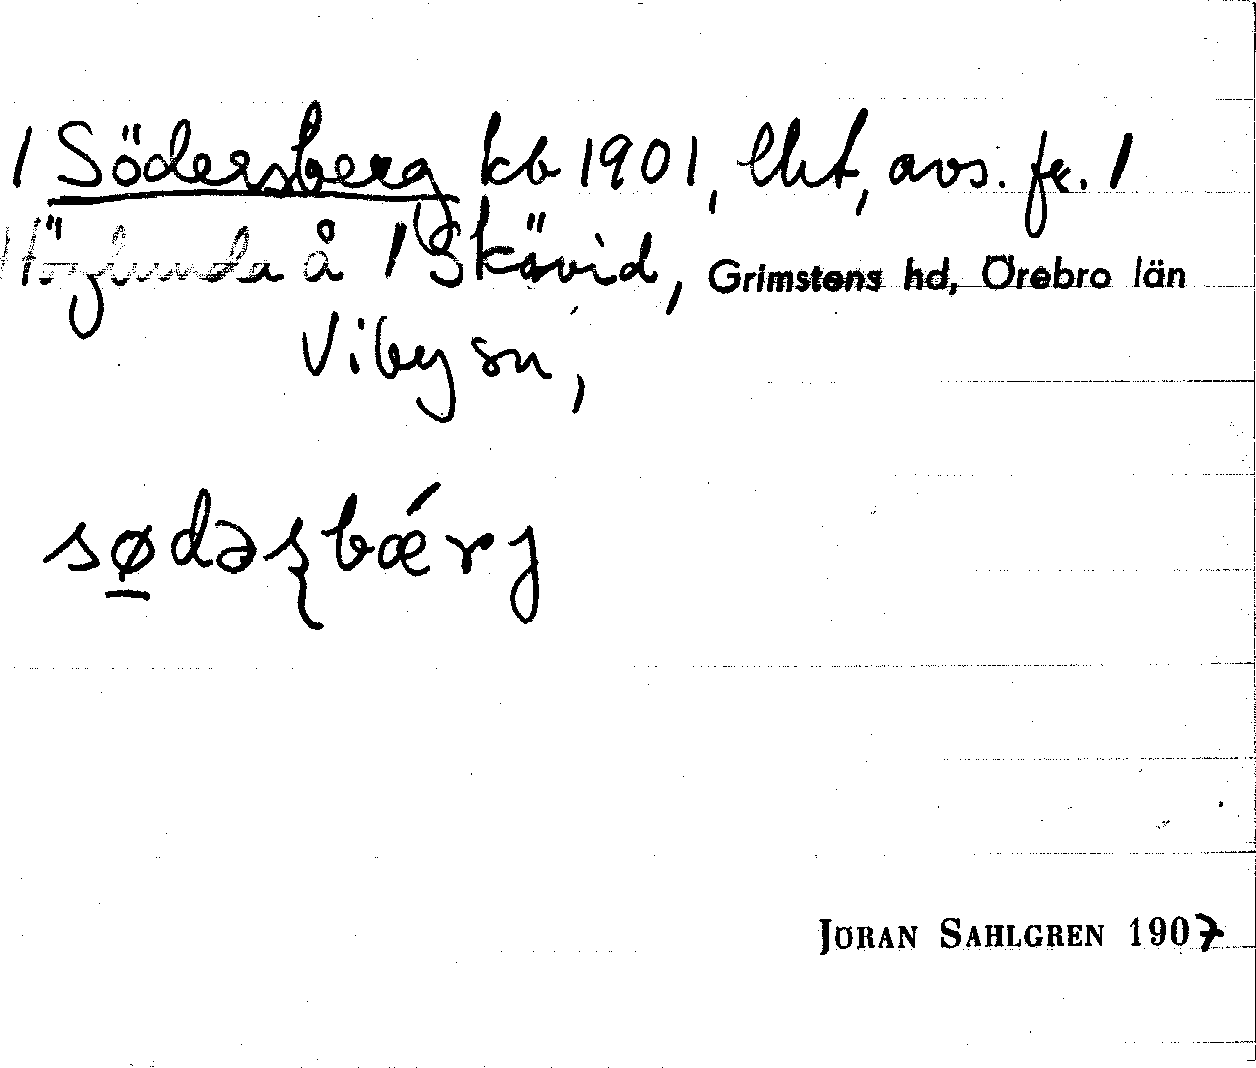 1 Södersberg kb 1901, lht, avs. fr. 1
Höglunda å 1 Skävid, Grimstens hd, Örebro län
Viby sn,
sø̲dəʂbǽrj
JÖRAN SAHLGREN 1907